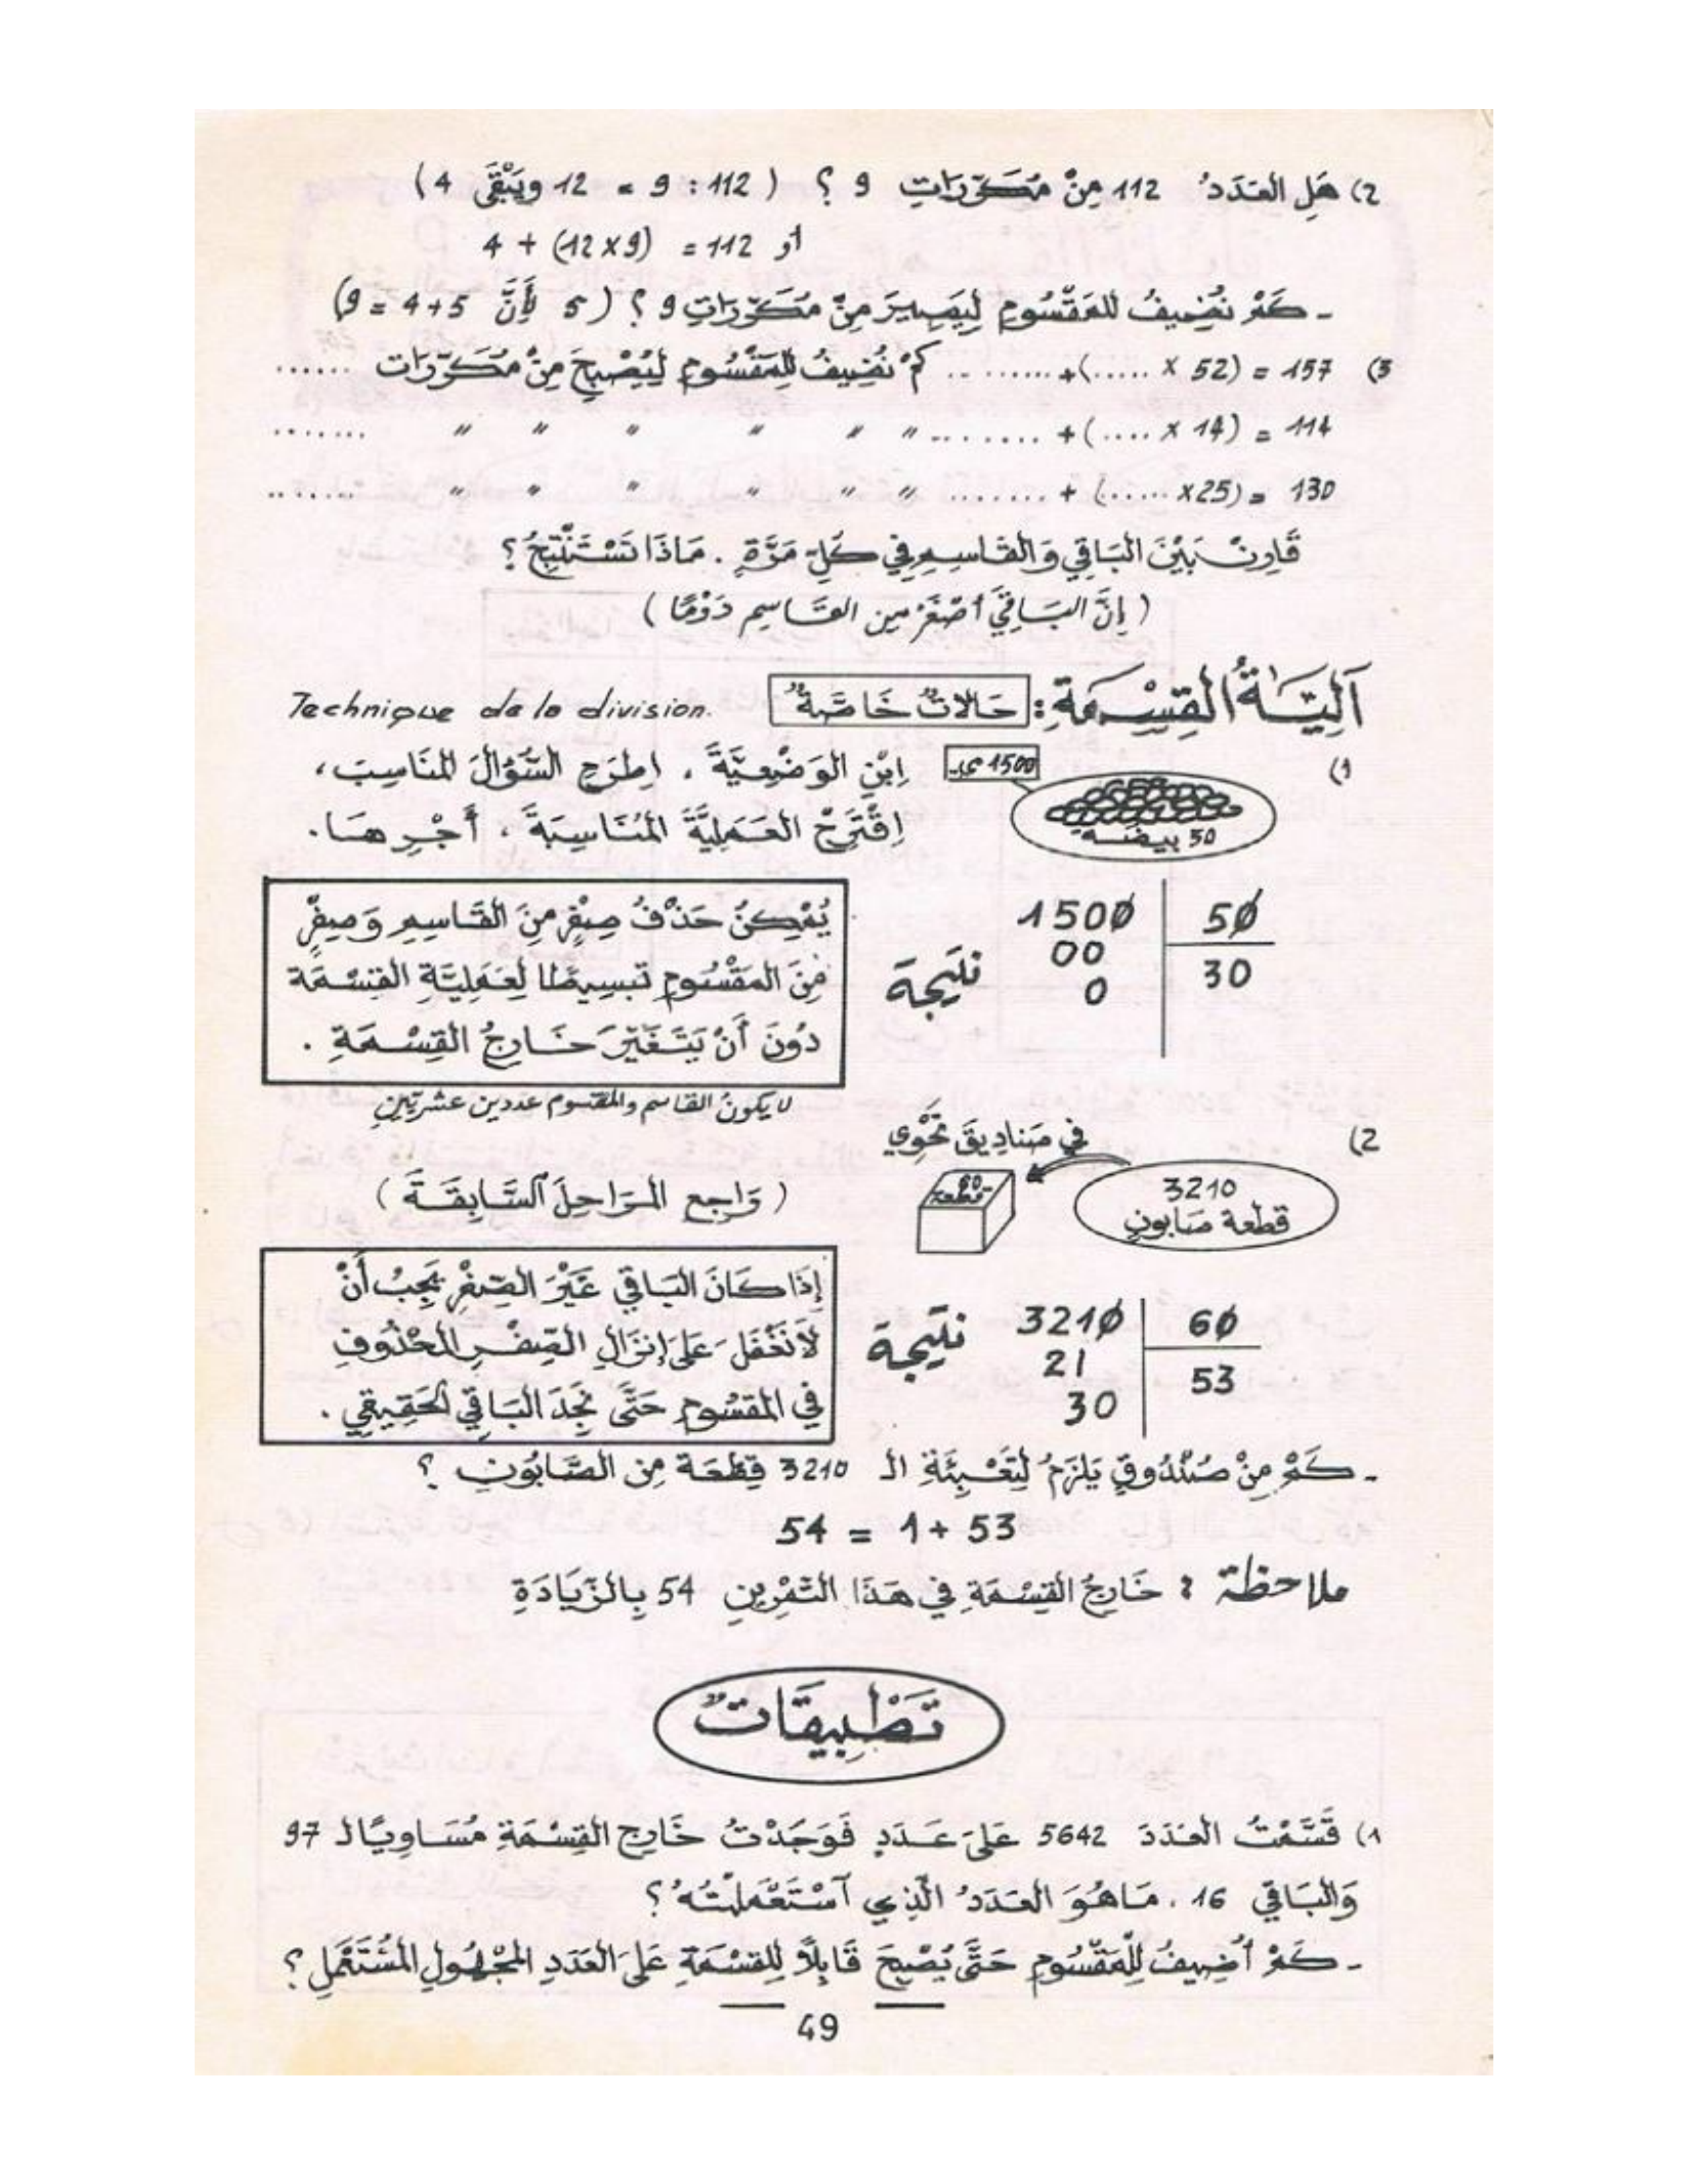 2) هَلِ العَدَدُ 112 مِنْ مُكَرَّرَاتِ 9 ؟ ( 112 : 9 = 12 ويَبْقَى 4 )
أو 112 = (12 x 9) + 4
- كَمْ نُضِيفُ للمَقْسُومِ لِيَصِيرَ مِنْ مُكَرَّرَاتِ 9 ؟ ( 5 لِأَنَّ 5+4 = 9)
3) 157 = (52 x .....)+......... .. كَمْ نُضِيفُ لِلمَقْسُومِ لِيُصْبِحَ مِنْ مُكَرَّرَات ......
114 = (14 x ....)+ ......... " " " " " " .......
130 = (25x ......) + ........ " " " " " " .......
قَارِنْ بَيْنَ البَاقِي وَالقَاسِمِ فِي كُلِّ مَرَّةٍ . مَاذَا تَسْتَنْتِجُ ؟
( إِنَّ البَاقِيَ أَصْغَرُ مِن القَاسِمِ دَوْمًا )
آلِيَّةُ القِسْمَةِ : حَالَاتٌ خَاصَّةٌ Technique de la division.
1) 1500 مي.
50 بيضة
اِبْنِ الوَضْعِيَّةَ ، اِطرَحِ السُّؤَالَ المُنَاسِبَ ،
اِقْتَرِحْ العَمَلِيَّةَ المُنَاسِبَةَ ، أَجْرِهَا .
1500 | 50
00 | 30
0
نتيجة
يُمْكِنُ حَذْفُ صِفْرٍ مِنَ القَاسِمِ وَصِفْرٍ
مِنَ المَقْسُومِ تبسيطًا لِعَمَلِيَّةِ القِسْمَة
دُونَ أَنْ يَتَغَيَّرَ خَارِجُ القِسْمَةِ .
لا يكونُ القاسم والمقسوم عددين عشريّينِ
2) في صَناديقَ تَحْوِي
60 قطعة
3210
قطعة صَابونٍ
( وَاجع المَرَاحِلَ السَّابِقَةَ )
3210 | 60
21 | 53
30
نتيجة
إِذَا كَانَ البَاقِي غَيْرَ الصِّفْرِ يَجِبُ أَنْ
لَا نَغْفَلَ عَلَى إِنزَالِ الصِّفْرِ المَحْذُوفِ
فِي المَقسُومِ حَتَّى نَجِدَ البَاقِي الحَقِيقِي .
- كَمْ مِنْ صُنْدُوقٍ يَلزَمُ لِتَعْبِئَةِ الـ 3210 قِطْعَة مِن الصَّابُونِ ؟
53 + 1 = 54
ملاحظة : خَارِجُ القِسْمَةِ فِي هَذَا التَّمْرِينِ 54 بِالزِّيَادَةِ
تَطْبِيقَاتٌ
1) قَسَّمْتُ العَدَدَ 5642 عَلَى عَدَدٍ فَوَجَدْتُ خَارِج القِسْمَةِ مُسَاوِيًا لـ 97
وَالبَاقِي 16 . مَا هُوَ العَدَدُ الَّذِي اسْتَعْمَلْتُهُ ؟
- كَمْ أُضِيفُ لِلْمَقْسُومِ حَتَّى يُصْبِحَ قَابِلًا لِلقِسْمَةِ عَلَى العَدَدِ المَجْهُولِ المُسْتَعْمَلِ ؟
49